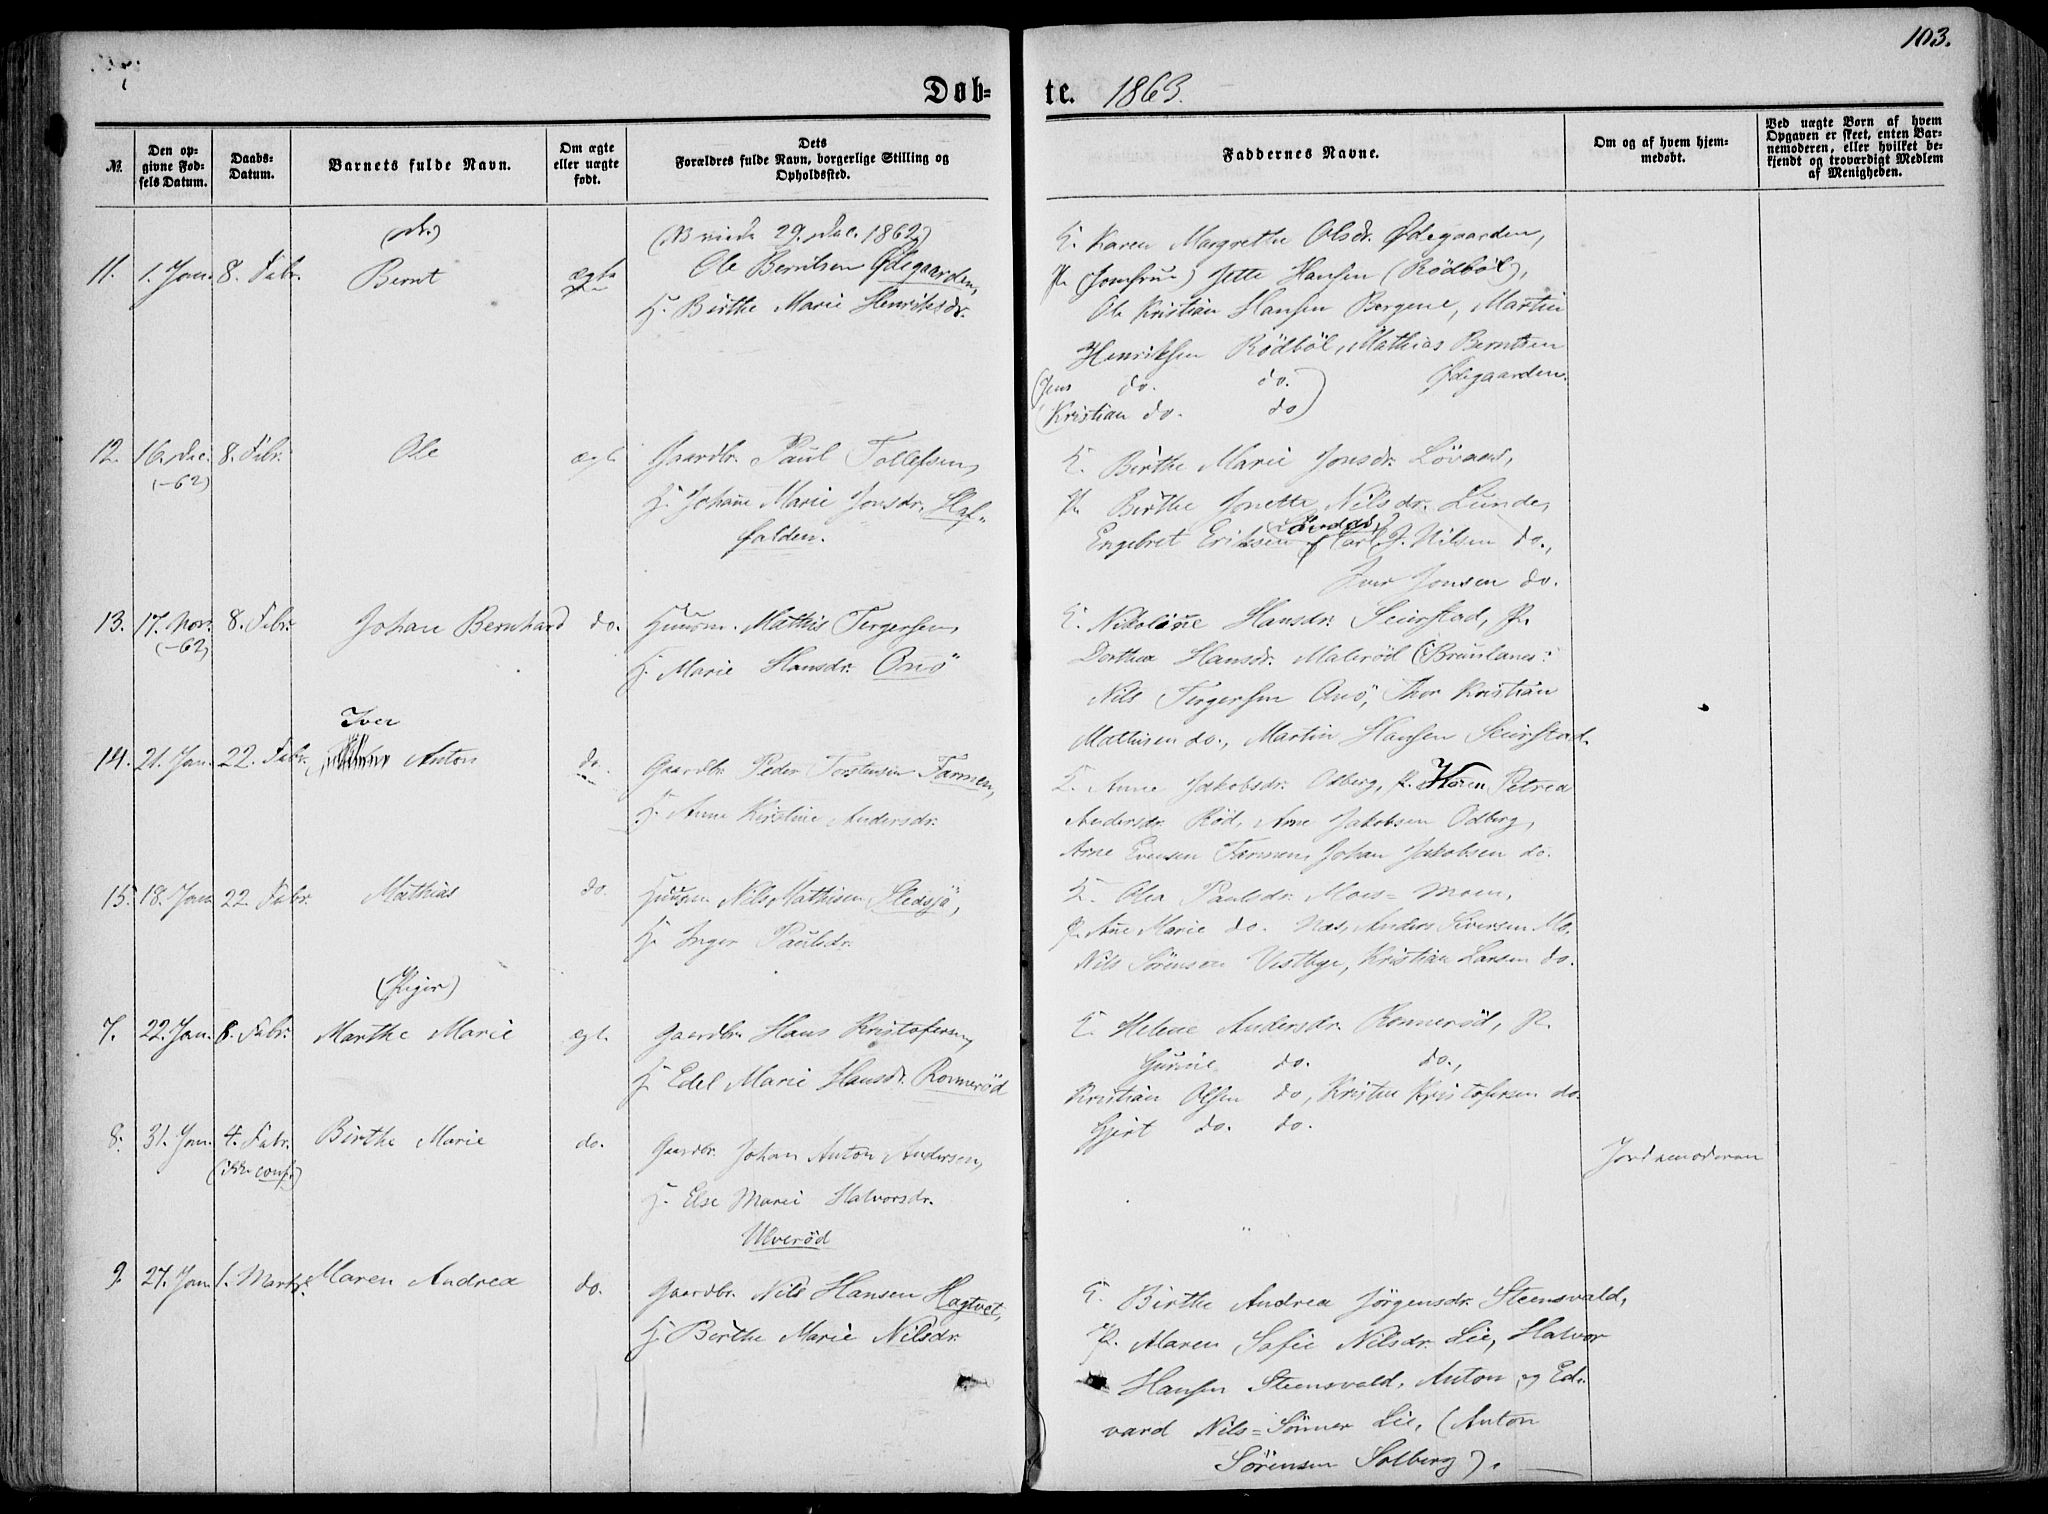 103.
Döb-te. 1863.
No.
Den opgivne Fødsels Datum.
Daabs-Datum.
Barnets fulde Navn.
Om ægte eller uægte født.
Dets Forældres fulde Navn, borgerlige Stilling og Opholdssted.
Faddernes Navne.
Om og af hvem hjemmedøbt.
Ved uægte Børn af hvem Opgaven er skeet, enten Barnemoderen, eller hvilket bekjendt og troværdigt Medlem af Menigheden.
29. Dec. 1862)
11. 1. Jan. 8. Febr. Bernt ægte
Ole Berntsen Ødegaarden,
H. Birthe Marie Henriksdr.
K. Karen Margrethe Olsdr. Ødegaarden,
P. (Jomfru) Jette Hansen (Rödböl),
Ole Kristian Hansen Bergene, Martin
Henriksen Rödböl, Mathias Berntsen
Ødegaarden.
(Jens do. do.
(Kristian do. do)
12. 16. Dec. (-62) 8. Febr. Ole ægt.
Gaardbr. Paul Tollefsen,
H. Johane Marie Jonsdr. Haf-
falden.
K. Birthe Marie Jonsdr. Lövaas,
P. Birthe Jonette Nilsdr. Lunde,
Engebret Eriksen Carl J. Nilsen do.,
Iver Jonsen do.
13. 17. Nov. (-62) 8. Febr. Johan Bernhard do.
Huusm. Mathis Tergersen,
H. Marie Hansdr. Onö
K. Nikoline Hansdr. Seierstad, P.
Dorthea Hansdr. Malerød (Brunlanes:
Nils Tergersen Onö, Thor Kristian
Mathisen do., Martin Hansen Seierstad.
Iver
14. 21. Jan. 22. Febr. Anton do.
Gaardbr. Peder Torstensen Farmen,
H. Anne Kirstine Andersdr.
K. Anne Jakobsdr. Odberg, P. Karen Petrea
Andersdr. Röd, Arne Jakobsen Odberg,
Arne Evensen Farmen, Johan Jakobsen do.
15. 18. Jan. 22. Febr. Mathias do.
Huusm. Nils Mathisen Stedsjö,
H. Inger Paulsdr.
K. Olea Paulsdr. Moes-Moen,
P. Ane Marie do. Næs, Anders Iversen Mo.
Nils Sörensen Vestbye, Kristian Larsen do.
(Piger)
7. 22. Jan. 8. Febr. Marthe Marie ægt.
Gaardbr. Hans Kristofersen,
H. Edel Marie Hansdr. Ronneröd
K. Helene Andersdr. Ronneröd, P.
Gurine do. do.,
Kristian Olsen do, Kristen Kristofersen do.
Gjert do. do.
8. 31. Jan. 4. Febr. (ikke conf.) Birthe Marie do.
Gaardbr. Johan Anton Andersen,
H. Else Marie Halvorsdr.
Ulveröd
Jordemoderen
9. 27. Jan. 1. Marts. Maren Andrea do.
Gaardbr. Nils Hansen Hagtvet,
H. Berthe Marie Nilsdr.
K. Birthe Andrea Jörgensdr. Steensvald,
P. Maren Sofie Nilsdr. Lie, Halvor
Hansen Steensvald, Anton og Ed-
vard Nils-Sönner Lie, (Anton
Sörensen Solberg).